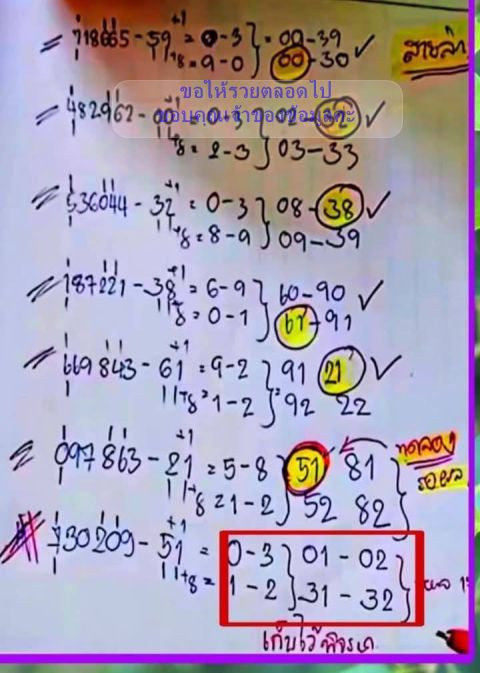 718665 - 59 +1 = 0 - 3 } = 00 - 39 ✓ สายล่าง
11+8 = 9 - 0 } 60 - 30
ขอให้รวยตลอดไป
ขอบคุณเจ้าของข้อมูลค่ะ
482962 - 00 +1 = 0 - 3 } 02 - 32 ✓
11+8 = 2 - 3 } 03 - 33
536044 - 32 +1 = 0 - 3 } 08 - 38 ✓
11+8 = 8 - 9 } 09 - 39
187221 - 38 +1 = 6 - 9 } 60 - 90 ✓
11+8 = 0 - 1 } 61 - 91
669843 - 61 +1 = 9 - 2 } 91 21 ✓
11+8 = 1 - 2 } 92 22
097863 - 21 +1 = 5 - 8 } 51 81 ทดลอง
11+8 = 1 - 2 } 52 82 รอผล
730209 - 51 +1 = 0 - 3 } 01 - 02
11+8 = 1 - 2 } 31 - 32
เก็บไว้พิจารณา